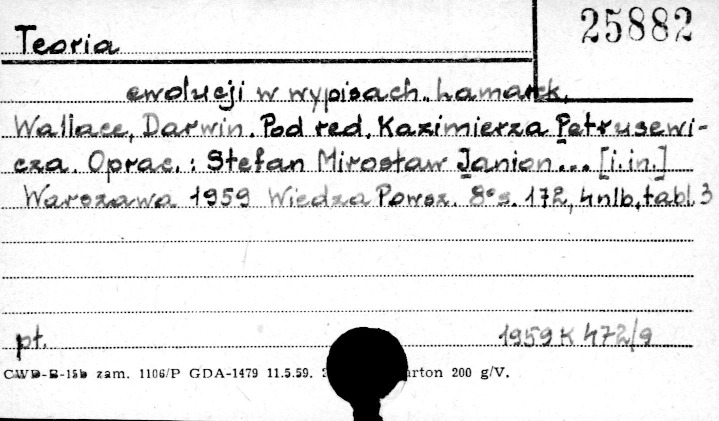 25882
Teoria
ewolucji w wypisach. Lamarck,
Wallace, Darwin. Pod red. Kazimierza Petrusewi-
cza. Oprac.: Stefan Mirosław Janion... [i.in.]
Warszawa 1959 Wiedza Powsz. 8° s. 172, 4 nlb, tabl. 3
pł. 1959 K 472/9
CWD-B-15b zam. 1106/P GDA-1479 11.5.59. rton 200 g/V.